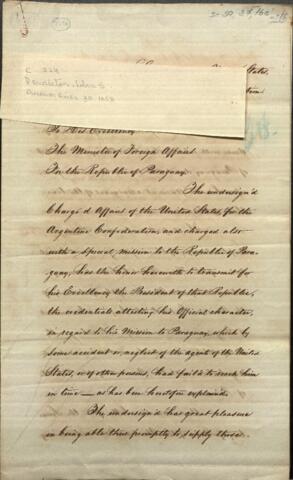 States,
C 229
Pendleton, John S
To His Excellency
The Minister of Foreign Affairs
For the Republic of Paraguay
The undersign'd
Chargé d Affairs of the United States, for the
Argentine Confederation, and charged also
with a special mission to the Republic of Para-
guay, has the honor herewith to transmit for
his Excellency the President of that Republic,
the credentials attesting his Official character,
in regard to his Mission to Paraguay, which by
some accident or neglect of the agents of the United
States, or of other persons, had failed to reach him
in time — as has been heretofore explained.
The undersign'd has great pleasure
in being able thus promptly to supply those